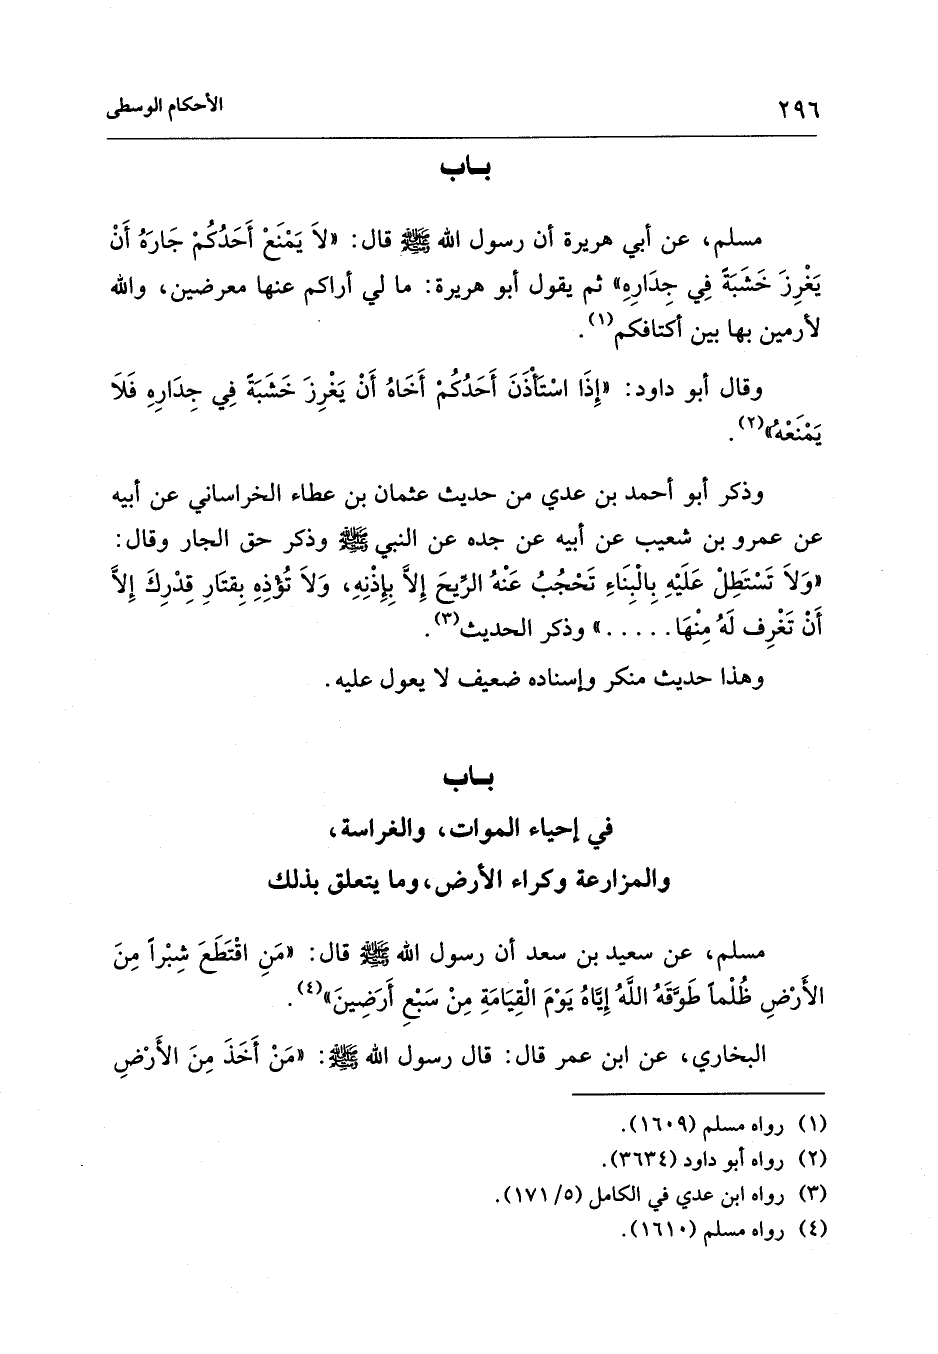 ٢٩٦ الأحكام الوسطى
بـاب
مسلم، عن أبي هريرة أن رسول الله ﷺ قال: «لاَ يَمْنَعْ أَحَدُكُمْ جَارَهُ أَنْ
يَغْرِزَ خَشَبَةً فِي جِدَارِهِ» ثم يقول أبو هريرة: ما لي أراكم عنها معرضين، والله
لأرمين بها بين أكتافكم(١).
وقال أبو داود: «إِذَا اسْتَأْذَنَ أَحَدُكُمْ أَخَاهُ أَنْ يَغْرِزَ خَشَبَةً فِي جِدَارِهِ فَلَا
يَمْنَعْهُ»(٢).
وذكر أبو أحمد بن عدي من حديث عثمان بن عطاء الخراساني عن أبيه
عن عمرو بن شعيب عن أبيه عن جده عن النبي ﷺ وذكر حق الجار وقال:
«وَلاَ تَسْتَطِلْ عَلَيْهِ بِالْبِنَاءِ تَحْجُبُ عَنْهُ الرِّيحَ إِلاَّ بِإِذْنِهِ، وَلاَ تُؤْذِهِ بِقتَارِ قِدْرِكَ إِلاَّ
أَنْ تَغْرِف لَهُ مِنْهَا.....» وذكر الحديث(٣).
وهذا حديث منكر وإسناده ضعيف لا يعول عليه.
بـاب
في إحياء الموات، والغراسة،
والمزارعة وكراء الأرض، وما يتعلق بذلك
مسلم، عن سعيد بن سعد أن رسول الله ﷺ قال: «مَنِ اقْتَطَعَ شِبْراً مِنَ
الأَرْضِ ظُلْماً طَوَّقَهُ اللَّهُ إِيَّاهُ يَوْمَ الْقِيَامَةِ مِنْ سَبْعِ أَرَضِينَ»(٤).
البخاري، عن ابن عمر قال: قال رسول الله ﷺ: «مَنْ أَخَذَ مِنَ الأَرْضِ
(١) رواه مسلم (١٦٠٩).
(٢) رواه أبو داود (٣٦٣٤).
(٣) رواه ابن عدي في الكامل (٥/ ١٧١).
(٤) رواه مسلم (١٦١٠).